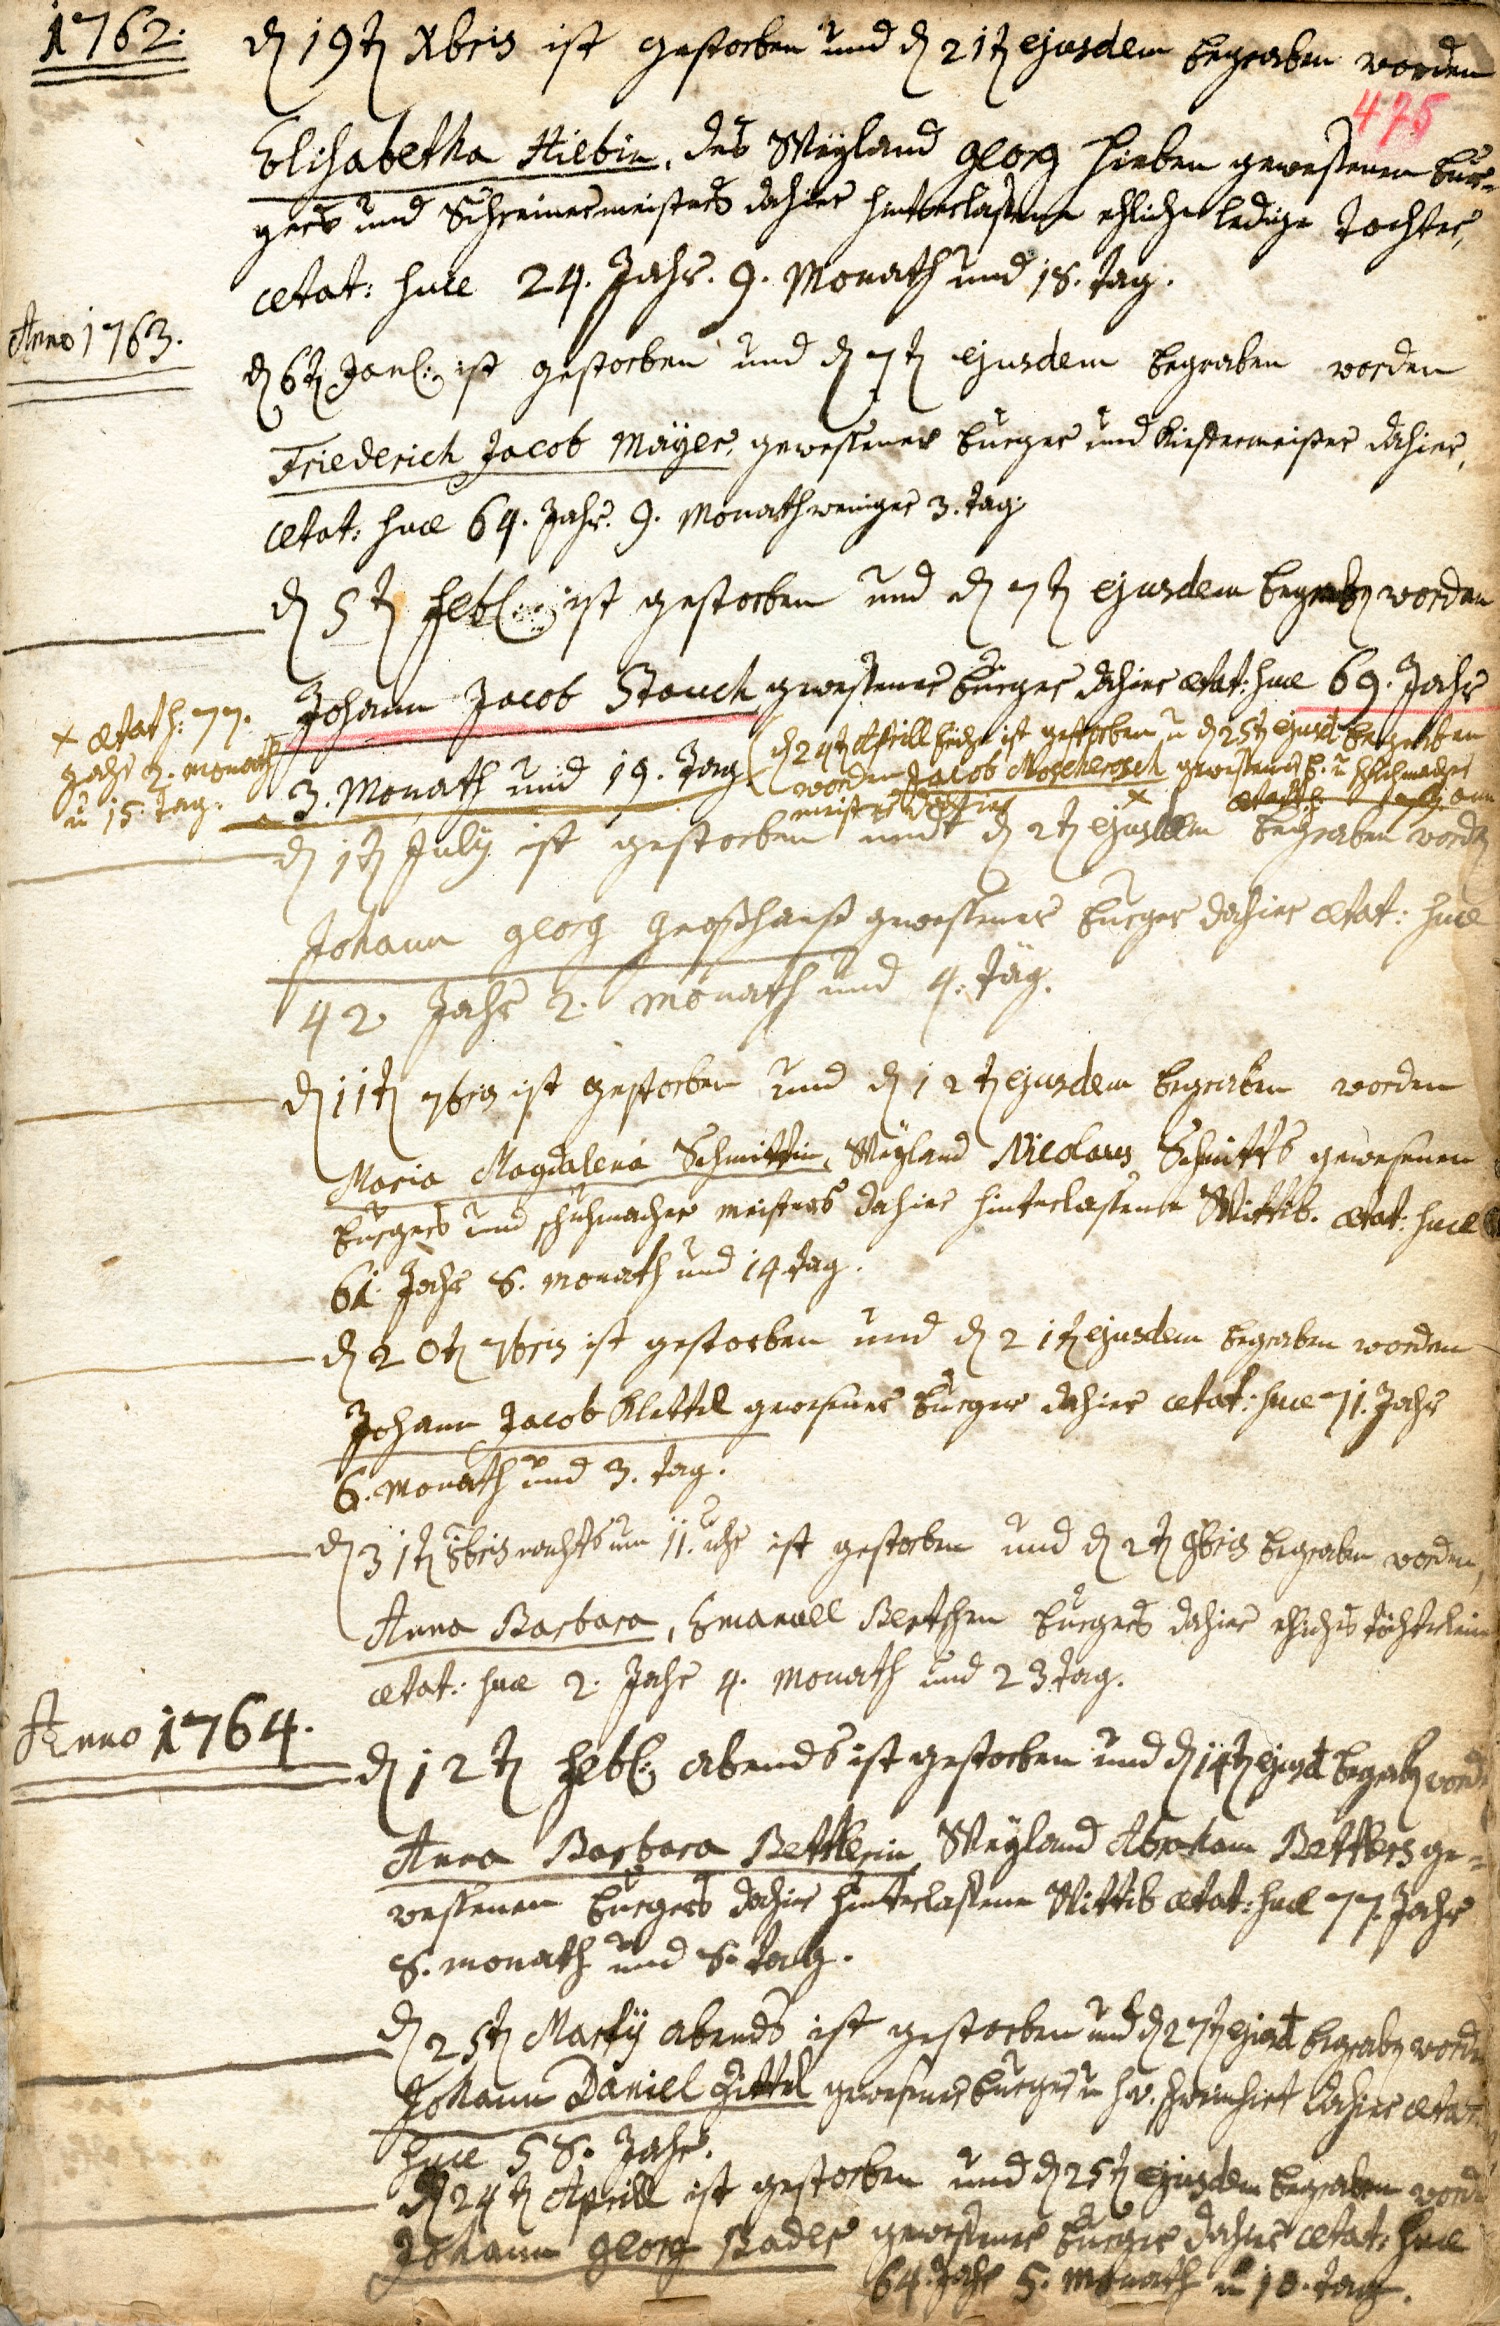 1762.
d 19t Xbris ist gestorben und d 21t ejusdem begraben worden
475
Elisabetha Hiebin, des Weyland Georg Hieben geweßenen Bur-
gers und Schreinermeisters dahier hinterlaßene ehliche ledige Tochter,
ætat: suæ 24. Jahr. 9. Monath und 18. tag.
Anno 1763.
d 6t Jan: ist gestorben und d 7t ejusdem begraben worden
Friederich Jacob Mäyer, geweßener burger und Kiefermeister dahier,
ætat: suæ 64. Jahr. 9. Monath weniger 3. tag
d 5t Feb: ist gestorben und d 7t ejusdem begrab worden
Johann Jacob Stauch geweßener burger dahier ætat: suæ 69. Jahr
3. Monath und 19. Tag
d 24t Aprill ist gestorben u d 25t ejusd begraben
worden Jacob Moscherosch geweßener b. u
meister dahier
x ætat h: 77.
Jahr 2. monath
u 15. Tag.
d 1t July ist gestorben undt d 2t ejusdem begraben word
Johann Georg Großhanß geweßener burger dahier ætat: suæ
42 Jahr 2. Monath und 4. täg.
d 11t 7bris ist gestorben und d 12t ejusdem begraben worden
Maria Magdalena Schmittin, Weyland Nicolaus Schmitts gewesenen
burgers und schuhmacher meisters dahier hinterlaßene Wittib. ætat: suæ
61 Jahr 8. Monath und 14 tag.
d 20t 7bris ist gestorben und d 21t ejusdem begraben worden
Johann Jacob Klettel gewesener burger dahier ætat: suæ 71. Jahr
6. Monath und 3. tag.
d 31t 8bris nachts um 11. uhr ist gestorben und d 2t 9bris begraben worden,
Anna Barbara, Emanuel Bertschen burgers dahier ehliches töchterlein
ætat: suæ 2. Jahr 4. Monath und 23 tag.
Anno 1764.
d 12t Feb: abends ist gestorben und d 14t ejusd begrab word
Anna Barbara Bettlerin Weyland Abraham Bettlers ge-
weßenen burgers dahier hinterlaßene Wittib ætat: suæ 77. Jahr
8. monath und 8. tag.
d 25t Martij abends ist gestorben und d 27t ejusd begrab word
Johann Daniel Zittel gewesener burger u dahier ætat:
suæ 58. Jahr.
d 24t Aprill ist gestorben und d 25t ejusdem begraben word
Johann Georg Bader geweßener burger dahier ætat: suæ
64. Jahr 5. Monath u 10. tag.